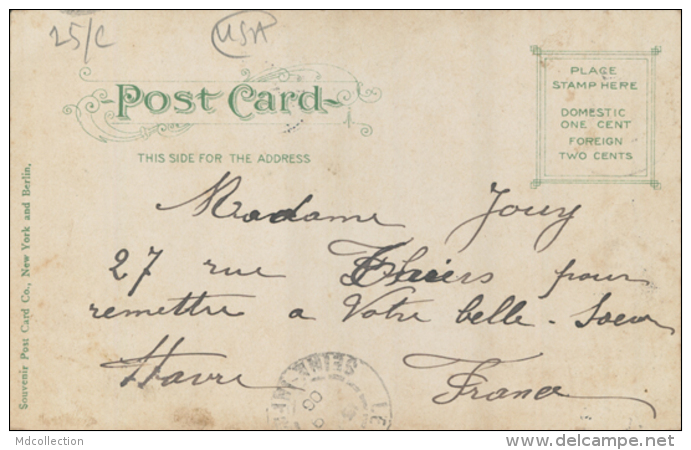 25/c
USA
Post Card
THIS SIDE FOR THE ADDRESS
PLACE
STAMP HERE
DOMESTIC
ONE CENT
FOREIGN
TWO CENTS
Souvenir Post Card Co., New York and Berlin.
Madame Jouy
27 rue Thiers pour
remettre a Votre belle-Soeur
Havre France
LE
SEINE
Mdcollection
delcampe.net